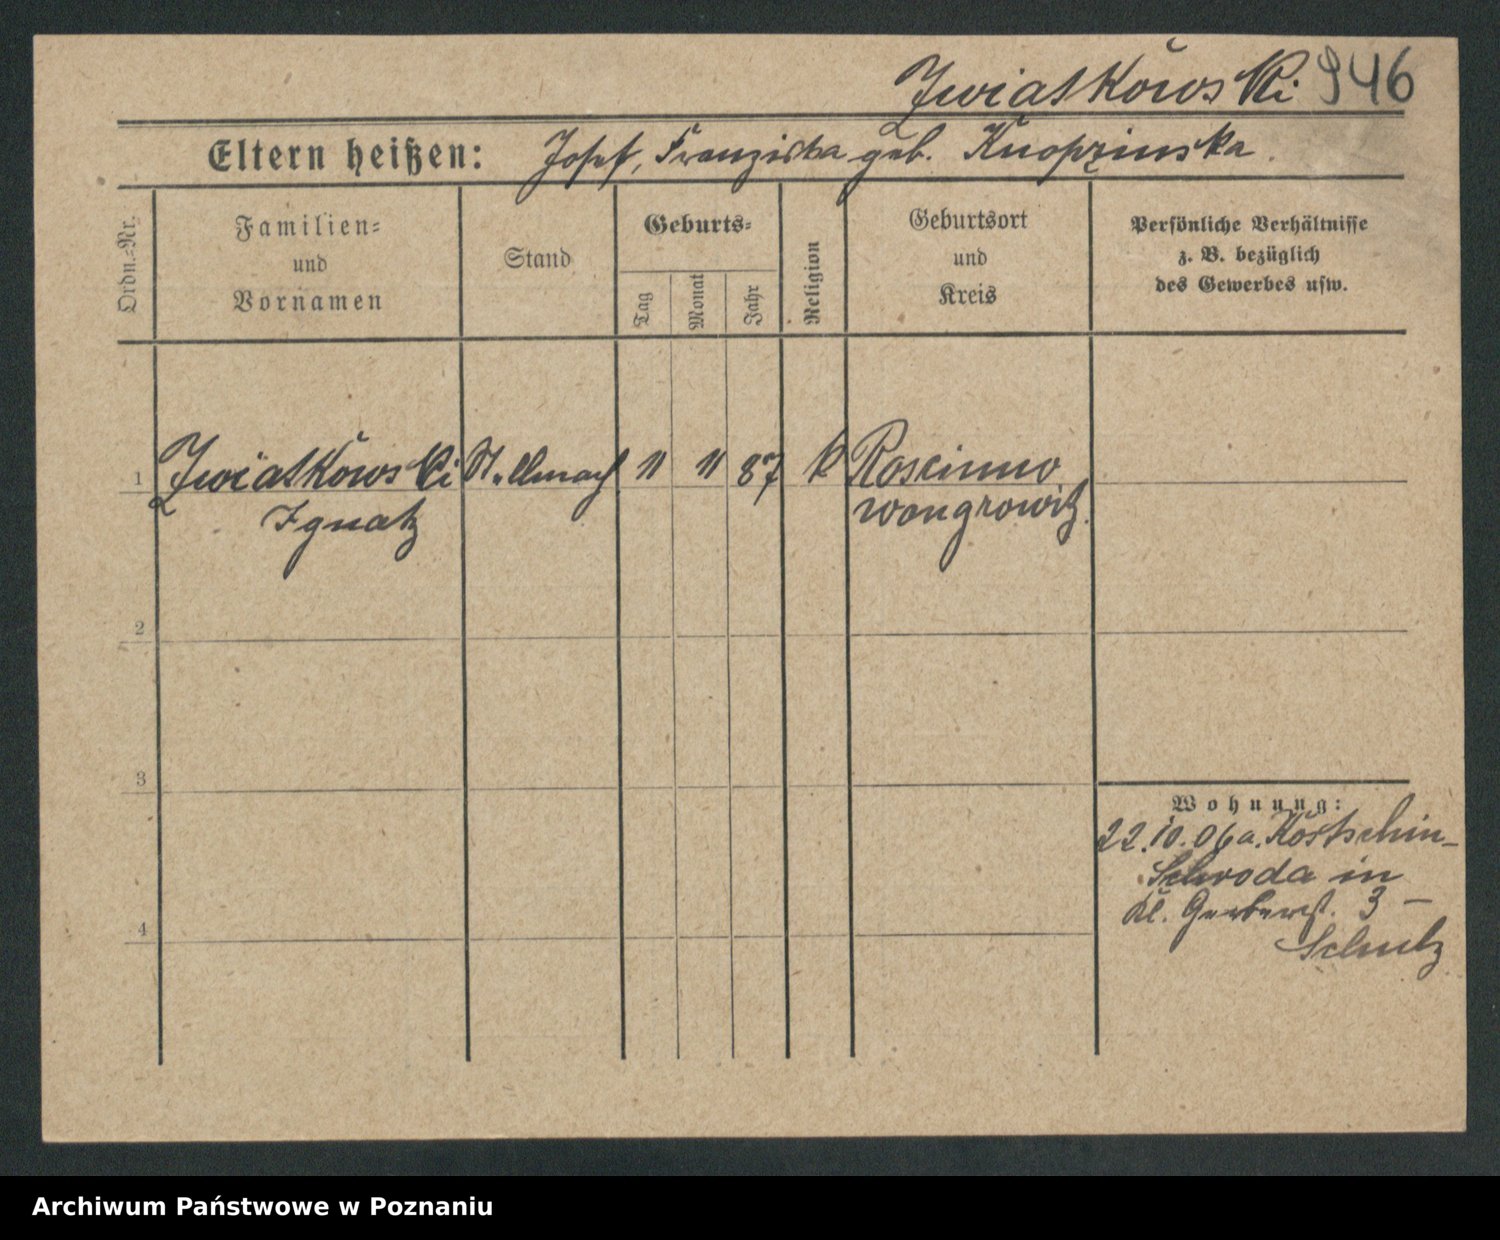 Zwiatkowski 946
Eltern heißen: Josef, Franziska geb. Knopzinska.
Ordn.-Nr.
Familien- und Vornamen
Stand
Geburts-
Tag
Monat
Jahr
Religion
Geburtsort und Kreis
Persönliche Verhältnisse
z. B. bezüglich
des Gewerbes usw.
1 Zwiatkowski Stellmach 11 11 87 k Roscinno
Ignatz Wongrowitz.
2
3
Wohnung:
22.10.06 a. Kostschin-
Schroda in
Kl. Gerberst. 3 –
Schulz
4
Archiwum Państwowe w Poznaniu